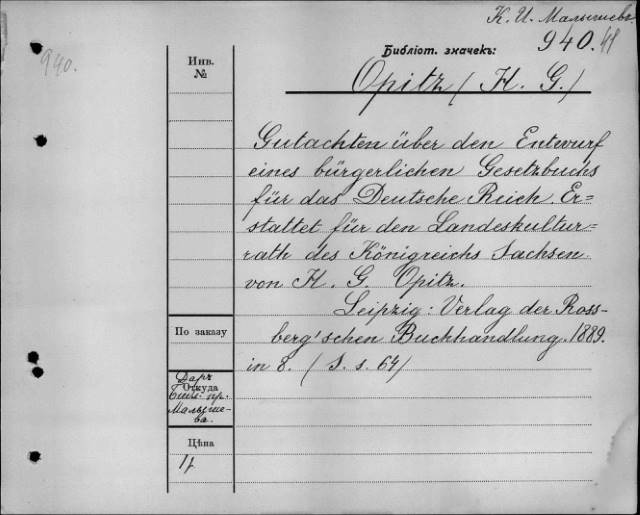 К. И. Малышевъ.
940.
Библіот. значекъ:
940.
Инв.
№
Opitz (H. G.)
Gutachten über den Entwurf
eines bürgerlichen Gesetzbuchs
für das Deutsche Reich. Er=
stattet für den Landeskultur=
rath des Königreichs Sachsen
von H. G. Opitz.
Leipzig: Verlag der Ross-
berg'schen Buchhandlung. 1889.
in 8. (S. s. 64)
По заказу
Даръ
Откуда
пр.
Малыше-
ва.
Цѣна